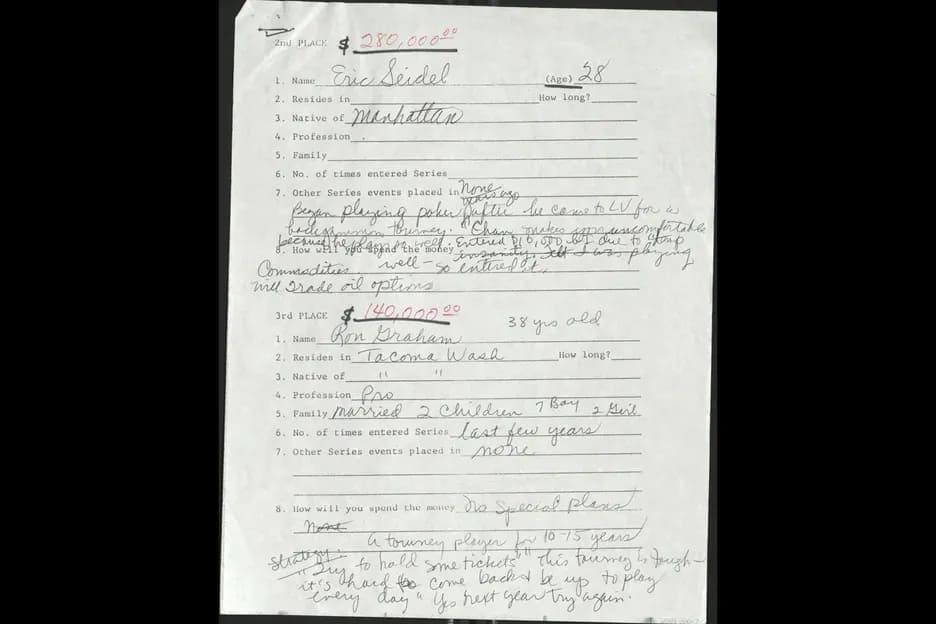 2nd PLACE $ 280,000.00
1. Name Eric Seidel (Age) 28
2. Resides in How long?
3. Native of Manhattan
4. Profession
5. Family
6. No. of times entered Series
7. Other Series events placed in None
years ago
Began playing poker after he came to LV for a
backgammon tourney. "Chan makes you uncomfortable
because he plays so well. Entered $10,000 bet due to "temp
8. How will you spend the money insanity. playing
Commodities. well - so entered it.
Will Trade oil options
3rd PLACE $ 140,000.00 38 yrs old
1. Name Ron Graham
2. Resides in Tacoma Wash How long?
3. Native of " "
4. Profession Pro
5. Family Married 2 Children 7 Boy 2 Girl
6. No. of times entered Series last few years
7. Other Series events placed in none
8. How will you spend the money No Special plans
None
A tourney player for 10-15 years
Strategy:
"Try to hold some tickets" "This tourney is tough -
it's hard to come back & be up to play
every day" Yes next year try again.